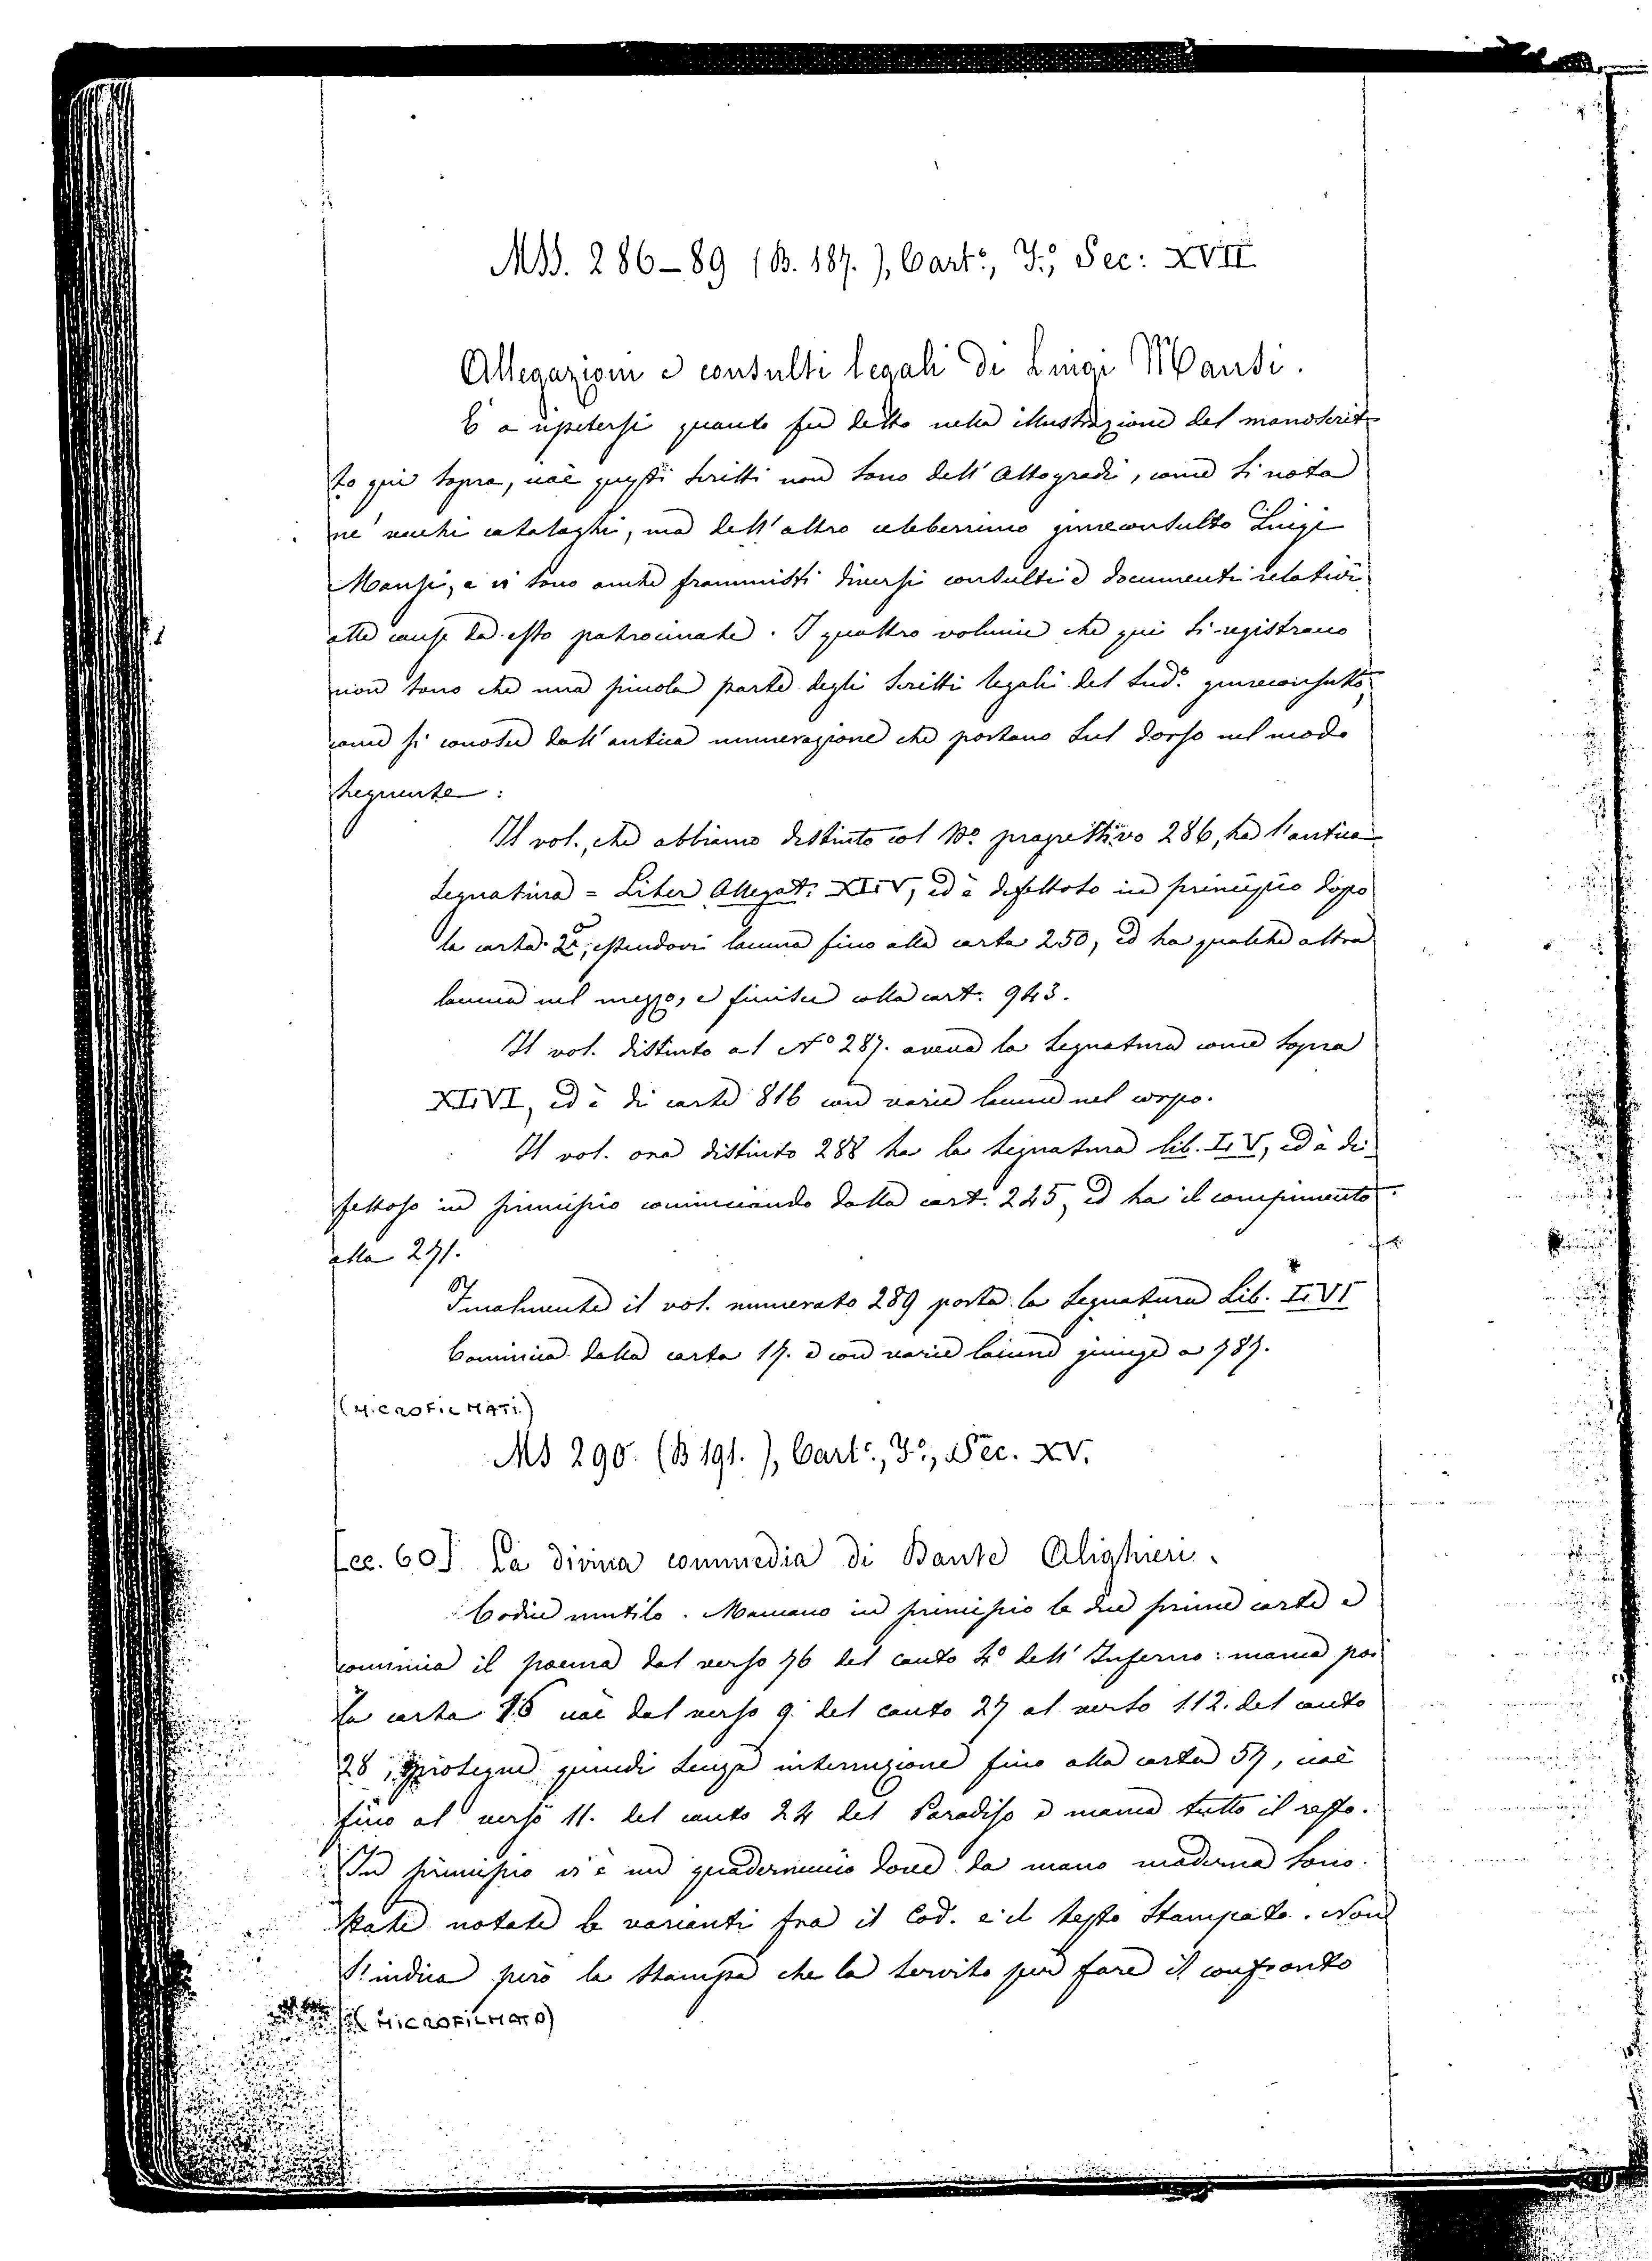 MSS. 286-89 (B. 187.), Cart:, F:, Sec: XVII
Allegazioni e consulti legali di Luigi Mansi.
E a ripetersi quanto fu detto nella illustrazione del manoscrit-
to qui sopra, cioè questi scritti non sono dell'Altogradi, come si nota
ne' vecchi cataloghi, ma dell'altro celeberrimo giureconsulto Luigi
Mansi, e vi sono anche frammisti diversi consulti e documenti relativi
alle cause da esso patrocinate. I quattro volumi che qui si registrano
non sono che una piccola parte degli scritti legali del sud.º giureconsulto,
come si conosce dall'antica numerazione che portano sul dorso nel modo
seguente:
Il vol., che abbiamo distinto col Nº progressivo 286, ha l'antica
segnatura = Liber Allegat: XLIV, ed è difettoso in principio dopo
la carta 2ª, essendovi lacuna fino alla carta 250, ed ha qualche altra
lacuna nel mezzo, e finisce colla cart. 943.
Il vol. distinto al Nº 287. aveva la segnatura come sopra
XLVI, ed è di carte 816 con varie lacune nel corpo.
Il vol. ora distinto 288 ha la segnatura lib. LV, ed è di-
fettoso in principio cominciando dalla cart. 245, ed ha il compimento
alla 271.
Finalmente il vol. numerato 289 porta la segnatura Lib. LVI
Comincia dalla carta 17. e con varie lacune giunge a 787.
(MICROFILMATI)
MS 290. (B 191.), Cart:, Fº, Sec. XV.
[cc. 60] La divina commedia di Dante Alighieri.
Codice mutilo. Mancano in principio le due prime carte e
comincia il poema dal verso 76 del canto 4º dell'Inferno: manca poi
la carta 16 cioè dal verso 9. del canto 27 al verso 112. del canto
28; prosegue quindi senza interruzione fino alla carta 57, cioè
fino al verso 11. del canto 24 del Paradiso e manca tutto il resto.
In principio vi è un quadernuccio dove da mano moderna sono
state notate le varianti fra il Cod. e il testo stampato. Non
s'indica però la stampa che ha servito per fare il confronto
(MICROFILMATO)